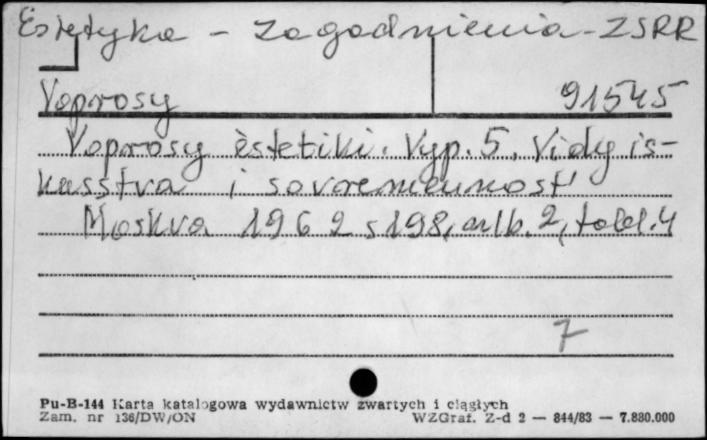 Estetyka - zagadnienia - ZSRR
Voprosy 91545
Voprosy èstetiki. Vyp. 5. Vidy is-
kusstva i sovremennost'
Moskva 1962 s 198, alb. 2, tabl. 4
7
Pu-B-144 Karta katalogowa wydawnictw zwartych i ciągłych
Zam. nr 136/DW/ON WZGraf. Z-d 2 — 844/83 — 7.880.000